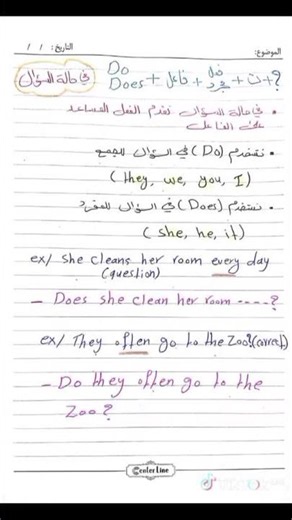 الموضوع: التاريخ: / /
في حالة السؤال Do Does + فاعل + فعل مجرد + ت + ?
• في حالة السؤال نقدم الفعل المساعد
على الفاعل
• نستخدم (Do) في السؤال للجمع
(they, we, you, I)
• نستخدم (Does) في السؤال للمفرد
(she, he, it)
ex/ She cleans her room every day
(question)
- Does she clean her room ----?
ex/ They often go to the Zoo?(correct)
- Do they often go to the
Zoo?
CenterLine